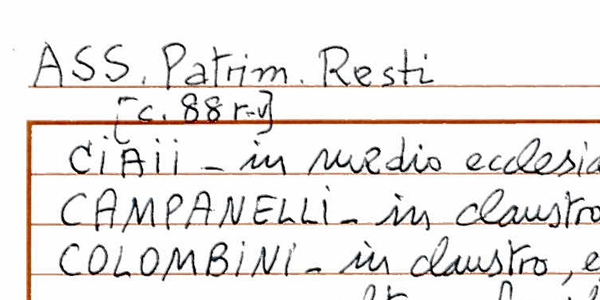 ASS. Patrim. Resti
[c. 88 r-v]
CiAii - in medio ecclesia
CAMPANELLi - in claustro
COLOMBiNi - in claustro, e